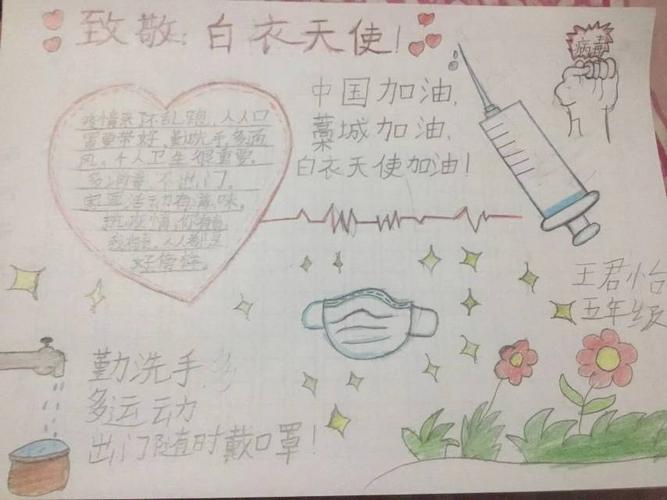 致敬:白衣天使!
病毒
中国加油,
藁城加油,
白衣天使加油!
疫情来了不乱跑,人人口
罩要带好,勤洗手,多通
风,个人卫生很重要,
多消毒,不出门,
家里活动有滋味,
抗疫情,你有责
我有责,人人都是
好榜样。
王君怡
五年级
勤洗手多
多运动
出门随时戴口罩!